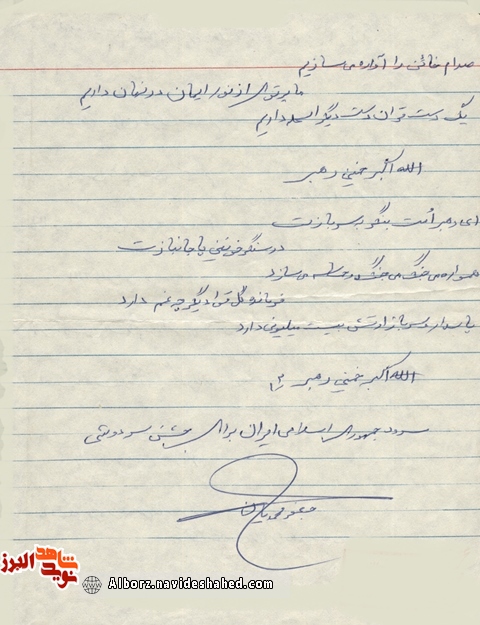 صدام خائن را آواره می سازیم
ما پرتوی از نور ایمان در نهان داریم
یک دست قرآن دست دیگر اسلحه داریم
الله اکبر خمینی رهبر
ای رهبر امت بنگر به سربازت
در سنگر خونین با جانبازت
همواره می جنگد می جنگد و حماسه می سازد
فرمانده کل قوا دیگر چه غم دارد
پاسدار و سرباز ارتش بیست میلیونی دارد
الله اکبر خمینی رهبر
سرود جمهوری اسلامی ایران برای بخش سرودنی
جعفر
شاهد
نوید
البرز
Alborz.navideshahed.com